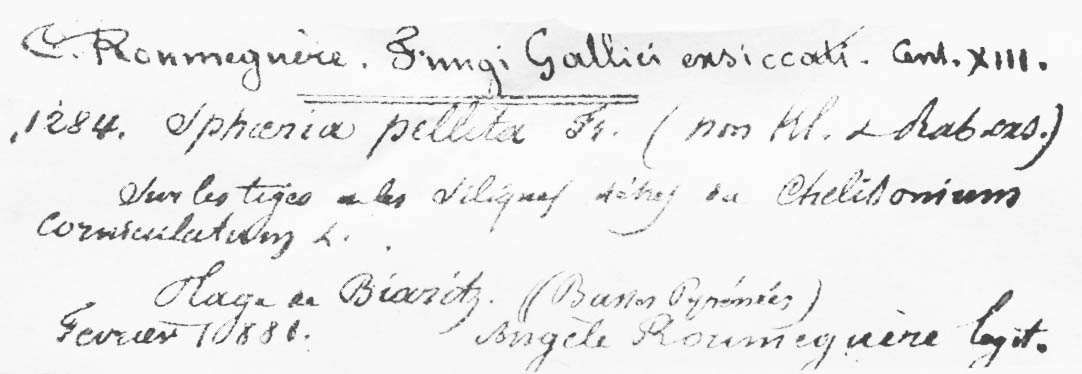 C. Roumeguère. Fungi Gallici exsiccati. Cent. XIII.
1284. Sphæria pellita Fr. (non Kl. & Rab. exs.)
Sur les tiges et les Siliques du Chelidonium
Corniculatum L.
Plage de Biaritz. (Basses Pyrénées)
Fevrier 1881. Angèle Roumeguère legit.